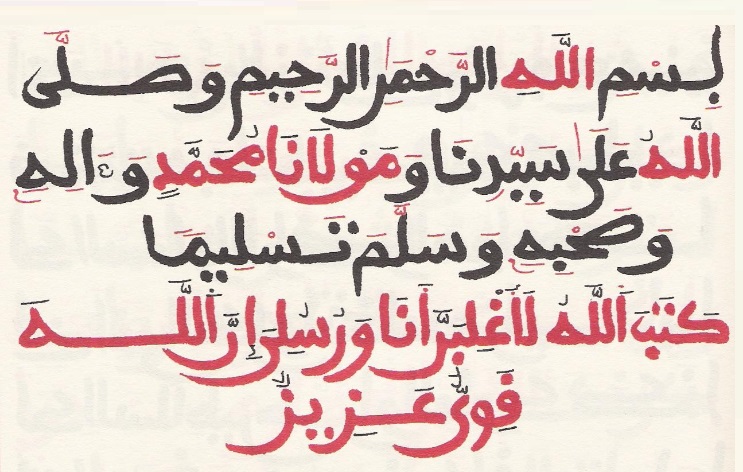 بِسْمِ اللَّهِ الرَّحْمَنِ الرَّحِيمِ وَصَلَّى
اللَّهُ عَلَى سَيِّدِنَا وَمَوْلَانَا مُحَمَّدٍ وَءَالِهِ
وَصَحْبِهِ وَسَلَّمَ تَسْلِيمًا
كَتَبَ اَللَّهُ لَأَغْلِبَنَّ أَنَا وَرُسُلِي إِنَّ اَللَّهَ
قَوِيٌّ عَزِيزٌ